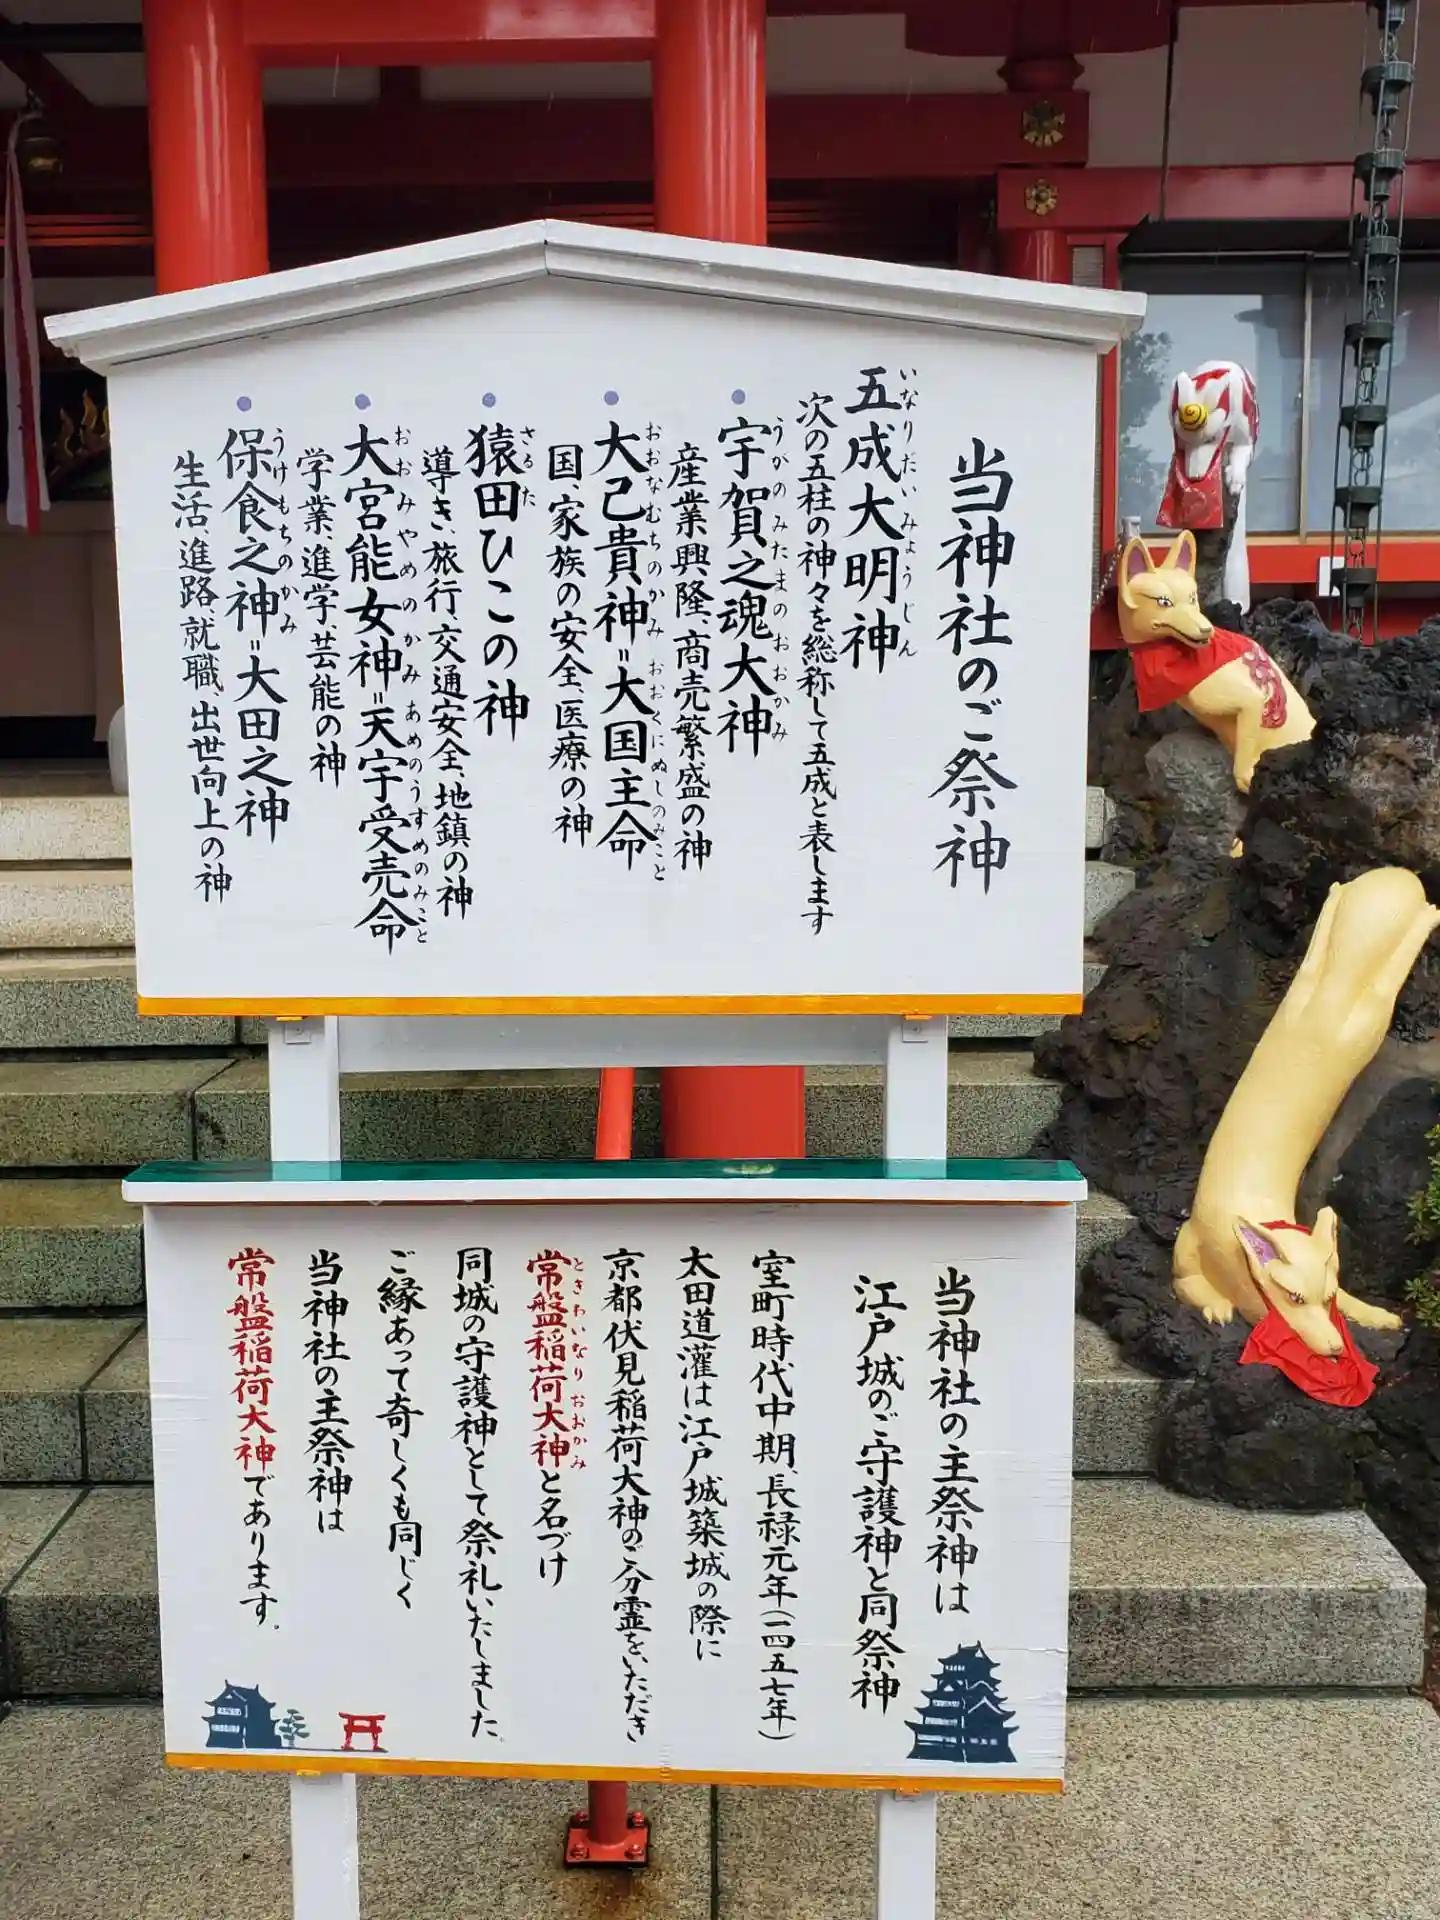 当神社のご祭神
五成大明神
いなりだいみょうじん
次の五柱の神々を総称して五成と表します
宇賀之魂大神
うがのみたまのおおかみ
産業興隆、商売繁盛の神
大己貴神=大国主命
おおなむちのかみ おおくにぬしのみこと
国、家族の安全、医療の神
猿田ひこの神
さるた
導き、旅行、交通安全、地鎮の神
大宮能女神=天宇受売命
おおみやめのかみ あめのうすめのみこと
学業、進学、芸能の神
保食之神=大田之神
うけもちのかみ
生活、進路、就職、出世向上の神
当神社の主祭神は
江戸城のご守護神と同祭神
室町時代中期、長禄元年(一四五七年)
太田道灌は江戸城築城の際に
京都伏見稲荷大神のご分霊をいただき
常盤稲荷大神と名づけ
ときわいなりおおかみ
同城の守護神として祭礼いたしました。
ご縁あって奇しくも同じく
当神社の主祭神は
常盤稲荷大神であります。